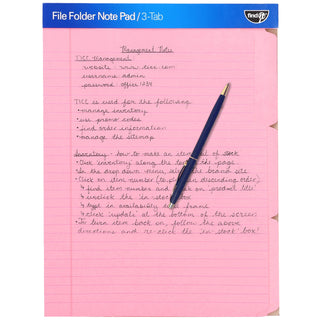 File Folder Note Pad / 3-Tab
find It
Management Notes
TICC Management
website - www.ticc.com
username admin
password office 1234
TICC is used for the following
• manage inventory
• use promo codes
• find order information
• manage the sitemap
Inventory - how to make an item out of stock
• Click "inventory" along the top of the page
• In the drop down menu, the brand site
• Click on item number (to descending order)
↳ find item number and click on "product title"
↳ unclick the in-stock
↳ type in availability frame
↳ click "update" at the bottom of the screen
• To turn item back on, follow the above
directions and re-click the "in-stock" box!